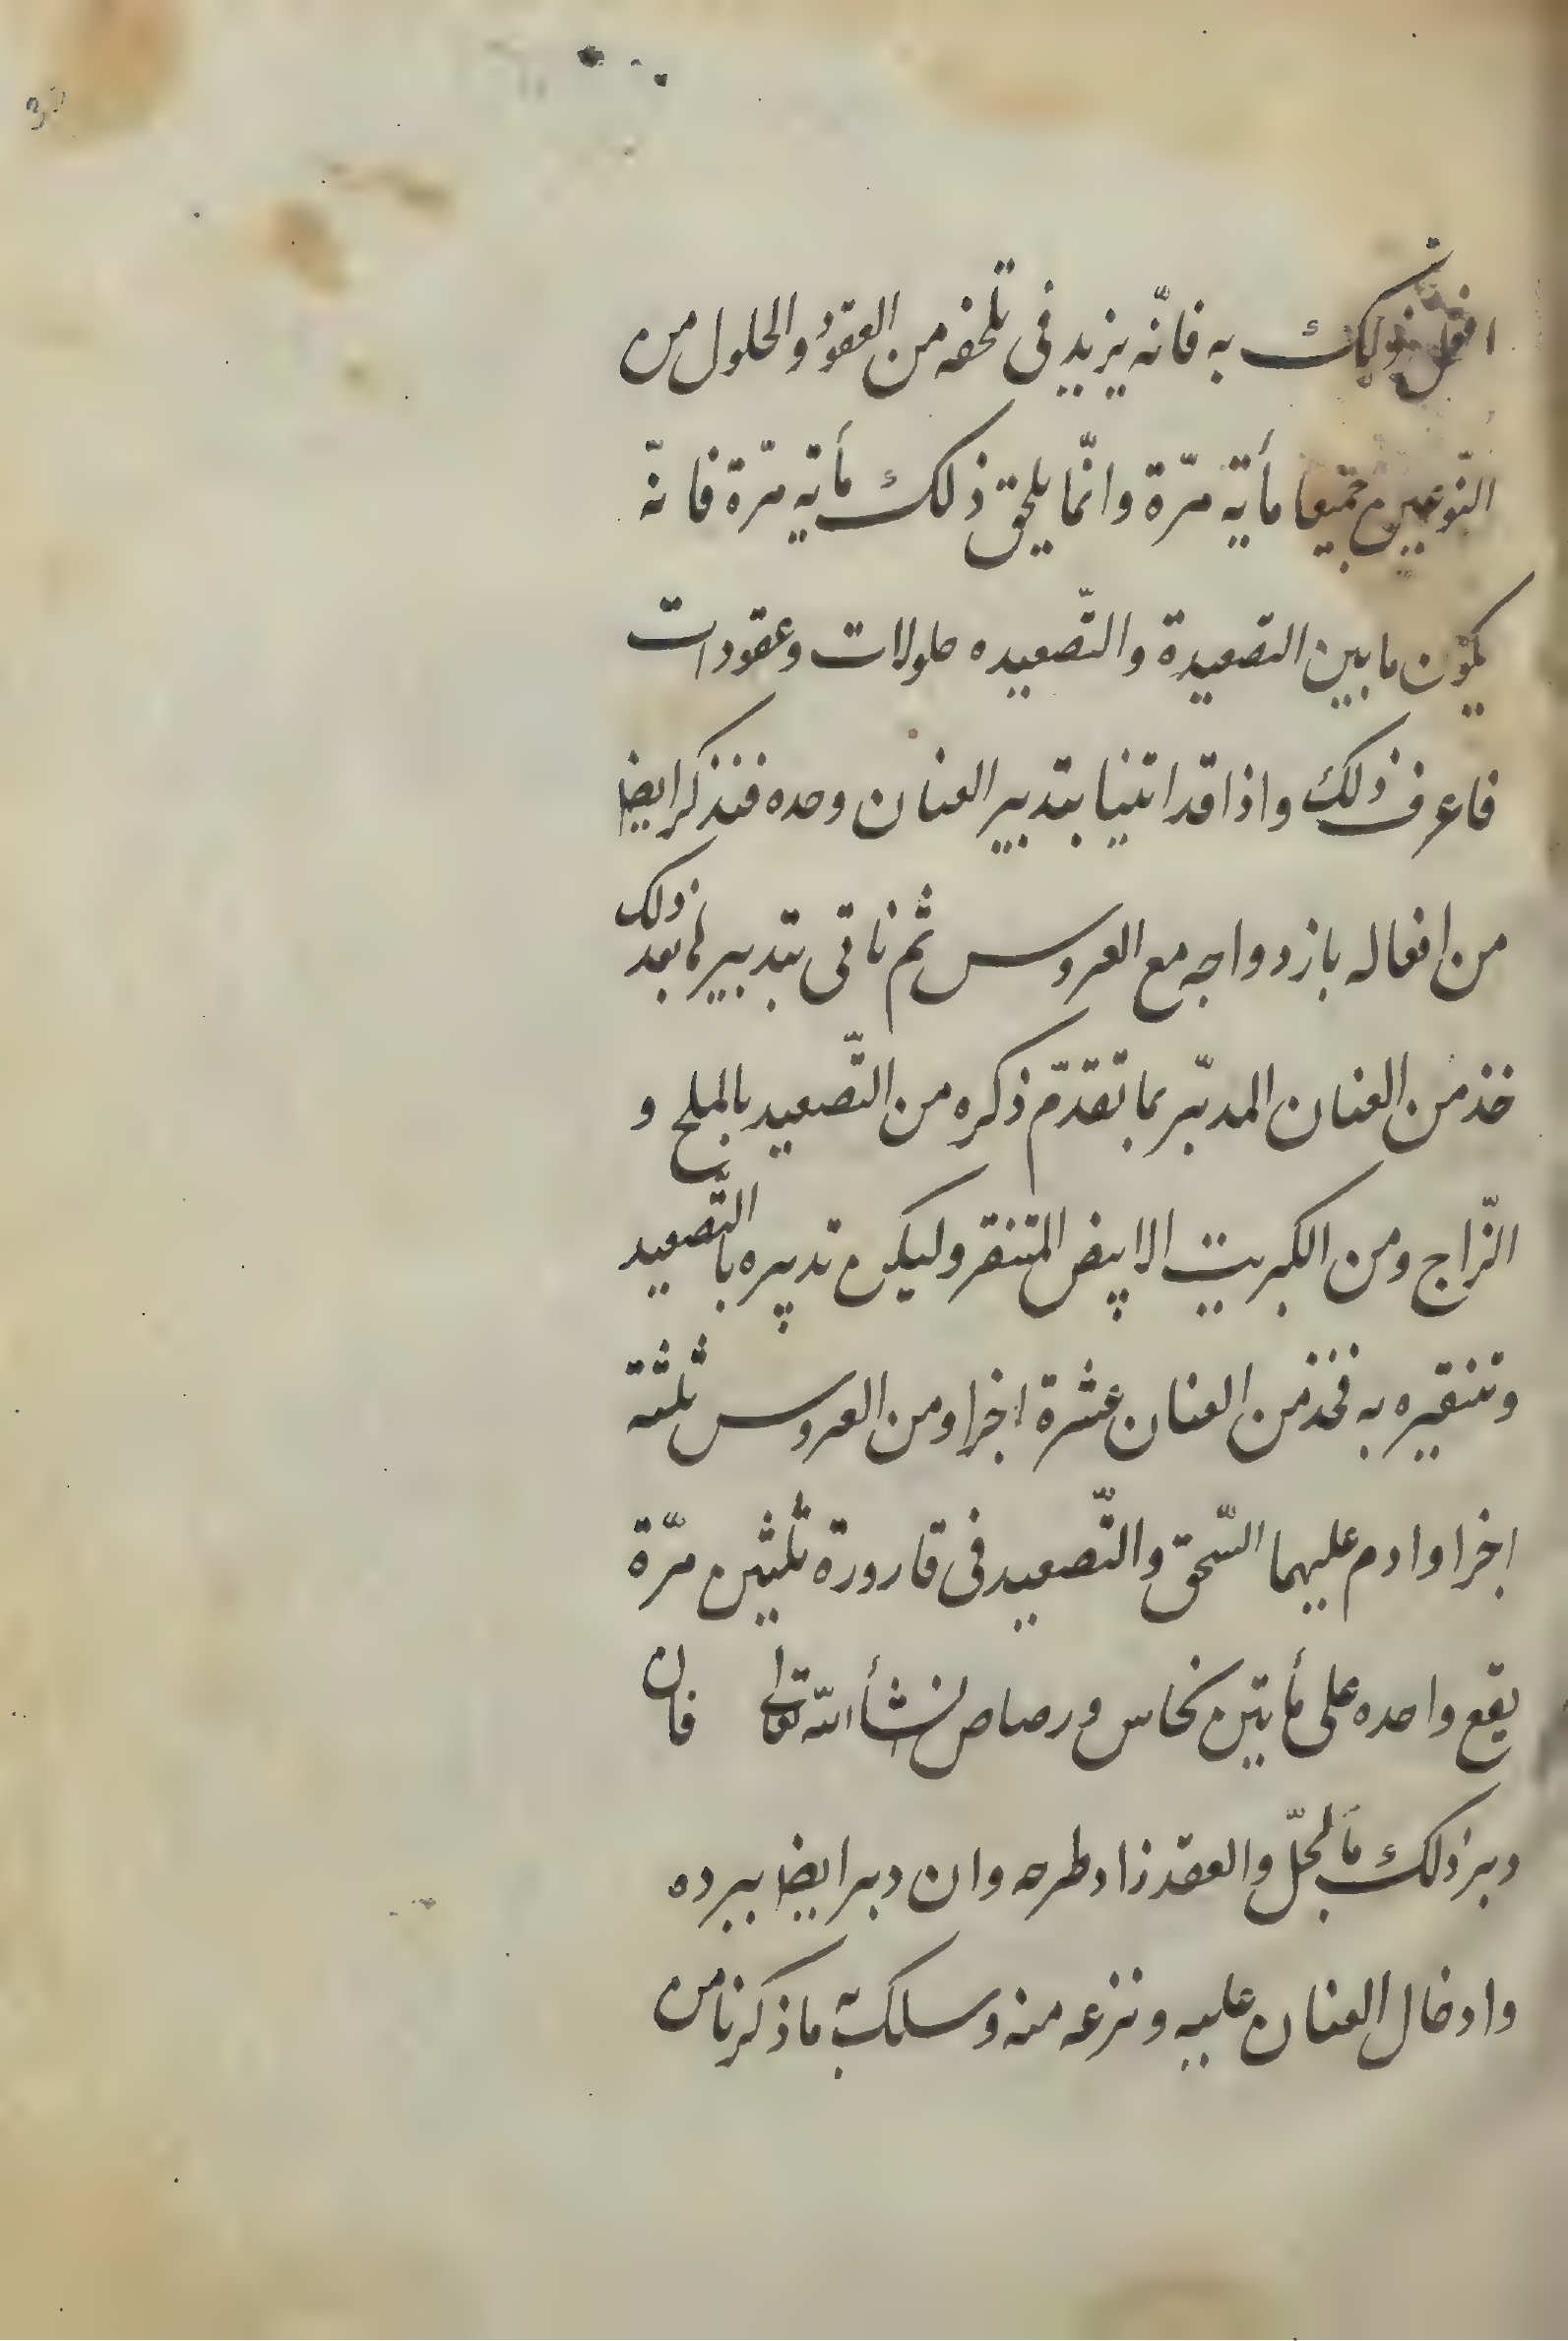 افعل ذلك به فانّه يزيد فى تلحفه من العقود والحلول من
النّوعين جميعا مأية مرّة وانّما يلحق ذلك مأيه مرّة فانّه
يكون ما بين التصعيدة والتّصعيده حلولات وعقودات
فاعرف ذلك واذا قد اتينا بتدبير العنان وحده فنذكر ايضا
من افعاله بازدواجه مع العروس ثم ناتى بتدبيرها بعد ذلك
خذ من العنان المدبّر بما تقدّم ذكره من التّصعيد بالملح و
الزّاج ومن الكبريت الابيض المتنقر وليكن تدبيره بالتّصعيد
وتنقيره به فخذ من العنان عشرة اجزا ومن العروس ثلثه
اجزا وادم عليهما السّحق والتّصعيد فى قارورة ثلثين مرّة
يقع واحده على مأيتين نحاس ورصاص انشأ الله تعالى فان
دبر ذلك بالحلّ والعقد زاد طرحه وان دبر ايضا ببرده
وادخال العنان عليه ونزعه منه وسلك به ما ذكرنا من